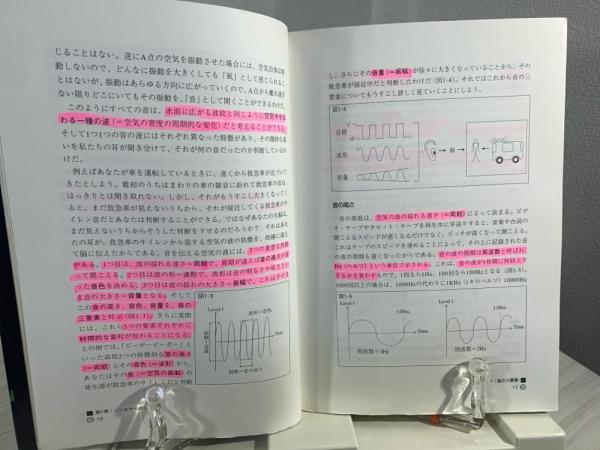 じることはない。逆にA点の空気を振動させた場合には、空気自体は移
動しないので、どんなに振動を大きくしても「風」として感じられるこ
とはないが、振動はあらゆる方向に広がっていくので、A点から離れ過ぎ
ない限りどこにいてもその振動を、「音」として聞くことができるわけだ。
このようにすべての音は、水面に広がる波紋と同じように空気中を伝
わる一種の波（＝空気の密度の周期的な変化）だと考えることができる。
そして1つ1つの音の波にはそれぞれ異なった特徴があり、その微妙な違
いを私たちの耳が聞き分けて、それが何の音だったのか判断しているわ
けだ。
例えばあなたが車を運転しているときに、遠くから救急車が近づいて
きたとしよう。最初のうちはまわりの車の雑音に紛れて救急車の音は、
はっきりとは聞き取れない。しかし、それがもうすこし大きくなってく
ると、まだ救急車が見えないうちから、それが接近してくる救急車のサ
イレン音だとあなたは判断することができる。ではなぜあなたの大脳に、
まだ見えないうちからそうした判断を下せるのだろうか？ それはあな
たの耳が、救急車のサイレンから発する空気の波の特徴を、的確に捉え
て脳に伝えたからである。音を伝える空気の波には、3つの重要な特徴
がある。1つ目は、波の揺れる速さ＝周期で、周期が違えば音の高さが違
って聞こえる。2つ目は波の形＝波形で、波形は音の明るさや暗さとい
った音色を決める。3つ目は波の揺れの大きさ＝振幅で、これはそのま
ま音の大きさ＝音量となる。そして
この音の高さ、音色、音量を、音の
三要素と呼ぶ（図1-3）。さらに実際
には、これら3つの要素それぞれに
時間的な変化が加わることになる。
上の例では、「ピーポーピーポー」と
いった高低2つの特徴的な音の高さ
（＝周期）とその音色（＝波形）から、
あなたはその音（＝空気の振動）の
発生源が救急車のサイレンだと判断
図1-3
Level
波形＝音色
Time
振幅＝音量
周期＝音の高さ
10
し、さらにその音量（＝振幅）が徐々に大きくなっていることから、その
救急車が接近中だと判断したわけだ（図1-4）。それではこれから音の三
要素についてもうすこし詳しく見ていくことにしよう。
図1-4
ピー
ポー
音程
波形
音量
脳
音の高さ
音の高低は、空気の波の揺れる速さ（＝周期）によって決まる。ビデ
オ・テープやカセット・テープを再生中に早送りすると、音楽や台詞の
聞こえるスピードが速くなるだけでなく、ピッチが高くなって聞こえる。
これはテープのスピードを速めることによって、その上に記録された音
の波の周期も速くなったからである。音の波の周期は周波数と呼ばれ、
Hz（ヘルツ）という単位で示される。これは、音の波が1秒間に何回上下
するかを表わすもので、1回なら1Hz、100回なら100Hzとなる（図1-5）。
1000回以上の場合は、1000Hzの代わりに1KHz（1キロヘルツ）、10000Hz
図1-5
Level
1.0Sec.
Time
周波数＝1Hz
Level
1.0Sec.
Time
周波数＝2Hz
11